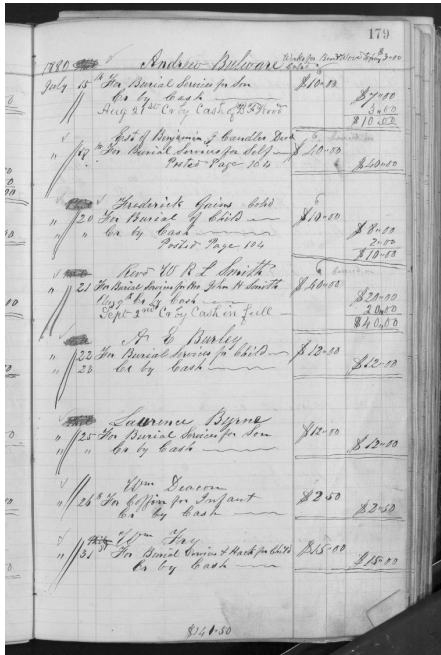 179
1880 Andrew Bulware Works for Bent & Wood Paying $3.00
July 15th For Burial Services for Son $10-00
Cr by Cash $7-00
Aug 21st Cr by Cash of B F Wood 3.00
$10.00
Est of Benjamin J Candler Decd
" 17th For Burial Services for Self $40-00
Posted Page 104 $40-00
Frederick Gains Cold
" 20 For Burial of Child $10-00
" " Cr by Cash $8-00
Posted Page 104 2-00
$10-00
Revd W R L Smith
" 21 For Burial Services for Bro John H Smith $40-00
Cr by Cash $20-00
Sept 2nd Cr by Cash in full 20.00
$40.00
A E Burley
" 22 For Burial Services for Child $12-00
" 23 Cr by Cash $12-00
Lawrence Byrne
" 25 For Burial Services for Son $12-00
" " Cr by Cash $12-00
Wm Deacon
" 26th For Coffin for Infant $2-50
Cr by Cash $2-50
Wm Fry
" 31 For Burial Service & Hack for Child $15-00
Cr by Cash $15-00
$141-50